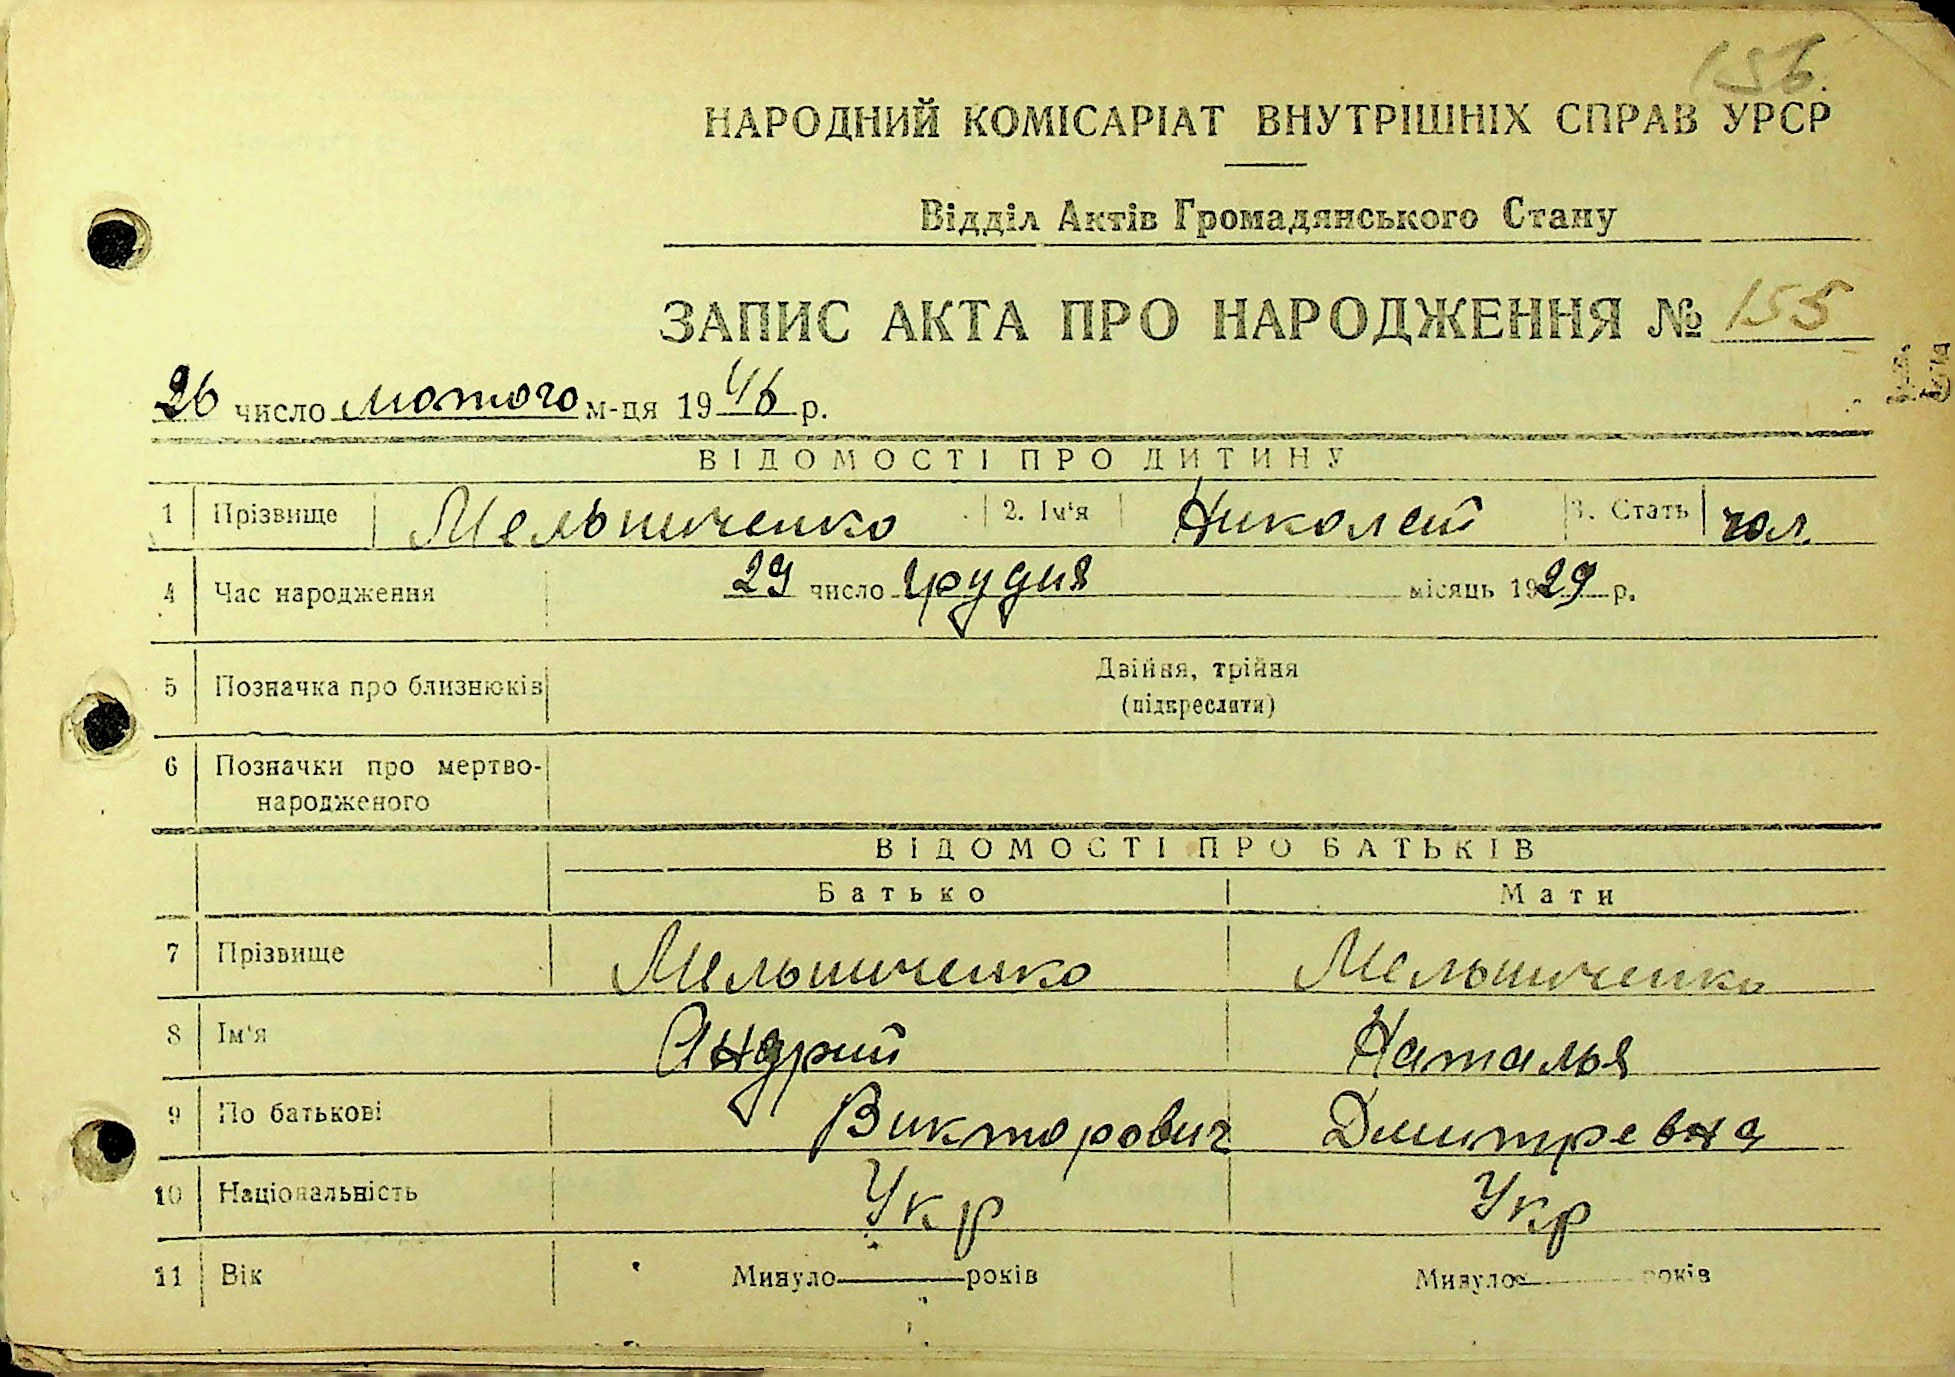 156.
НАРОДНИЙ КОМІСАРІАТ ВНУТРІШНІХ СПРАВ УРСР
Відділ Актів Громадянського Стану
ЗАПИС АКТА ПРО НАРОДЖЕННЯ № 155
26 число лютого м-ця 1946 р.
ВІДОМОСТІ ПРО ДИТИНУ
1 Прізвище Мельниченко 2. Ім'я Николай 3. Стать чол.
4 Час народження 29 число Грудня місяць 1929 р.
5 Позначка про близнюків Двійня, трійня
(підкреслити)
6 Позначки про мертво-
народженого
ВІДОМОСТІ ПРО БАТЬКІВ
Батько Мати
7 Прізвище Мельниченко Мельниченко
8 Ім'я Андрий Наталья
9 По батькові Викторович Дмитревна
10 Національність Укр Укр
11 Вік Минуло років Минуло років